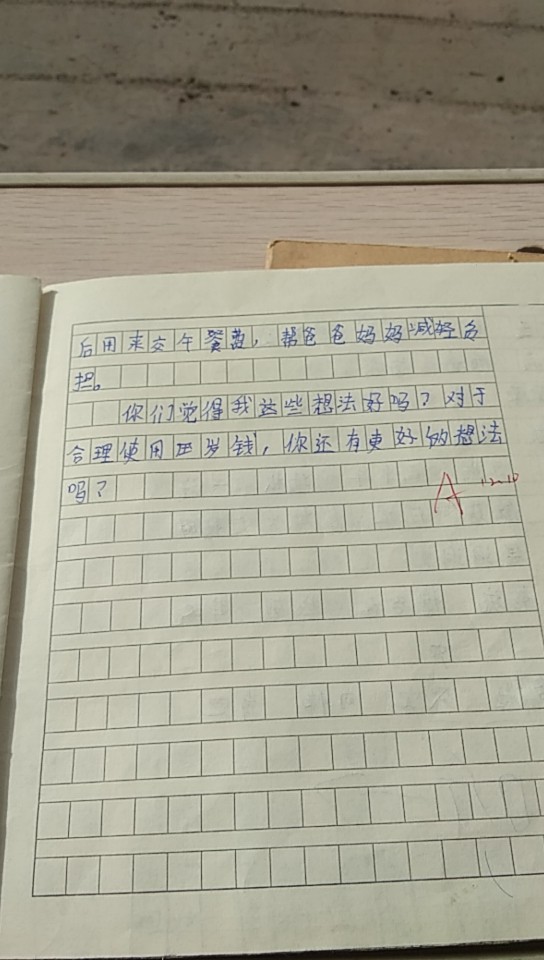 后用来交午餐费，帮爸爸妈妈减轻负
担。
你们觉得我这些想法好吗？对于
合理使用压岁钱，你还有更好的想法
吗？
A 12.10